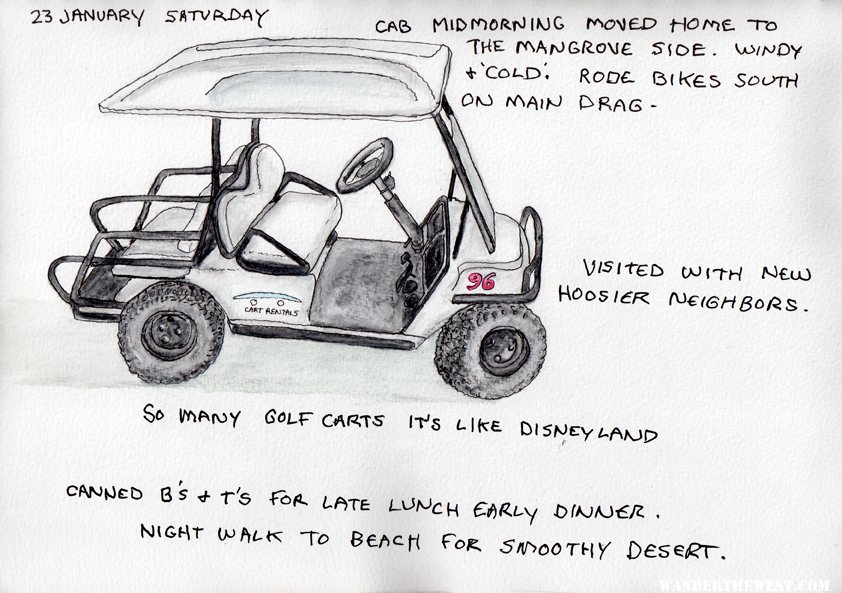 23 JANUARY SATURDAY
CAB MIDMORNING MOVED HOME TO
THE MANGROVE SIDE. WINDY
+ 'COLD'. RODE BIKES SOUTH
ON MAIN DRAG.
96
VISITED WITH NEW
HOOSIER NEIGHBORS.
CART RENTALS
SO MANY GOLF CARTS IT'S LIKE DISNEYLAND
CANNED B'S + T'S FOR LATE LUNCH EARLY DINNER.
NIGHT WALK TO BEACH FOR SMOOTHY DESERT.
WANDERTHEWEST.COM